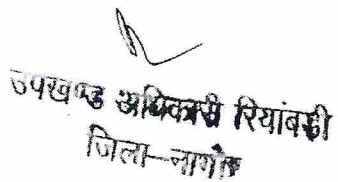 उपखण्ड अधिकारी रियांबड़ी
जिला—नागौर